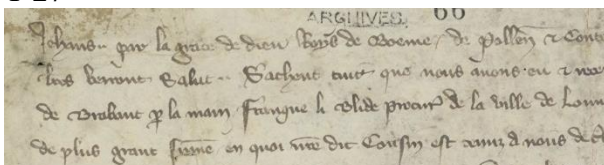 ARCHIVES. 66
Jehans .. par la grace de dieu Roys de Boeme, de Pollen & Cont
lres verront Salut .. Sachent tuit que nous avons eu & rec
de Brabant p la main Franque li procur de la ville de Lou
de plus grant some en quoi nre dit Cousin est tenuz a nous de